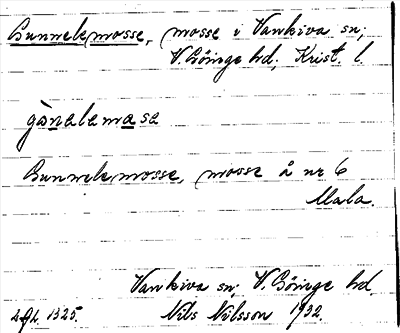 Gunnelsmosse, mosse i Vankiva sn;
V. Göinge hd; Krist. l.
gònelsmosse
Gunnelsmosse, mosse å nr 6
Mala.
Vankiva sn; V. Göinge hd.
Nils Nilsson 1932.
1325.